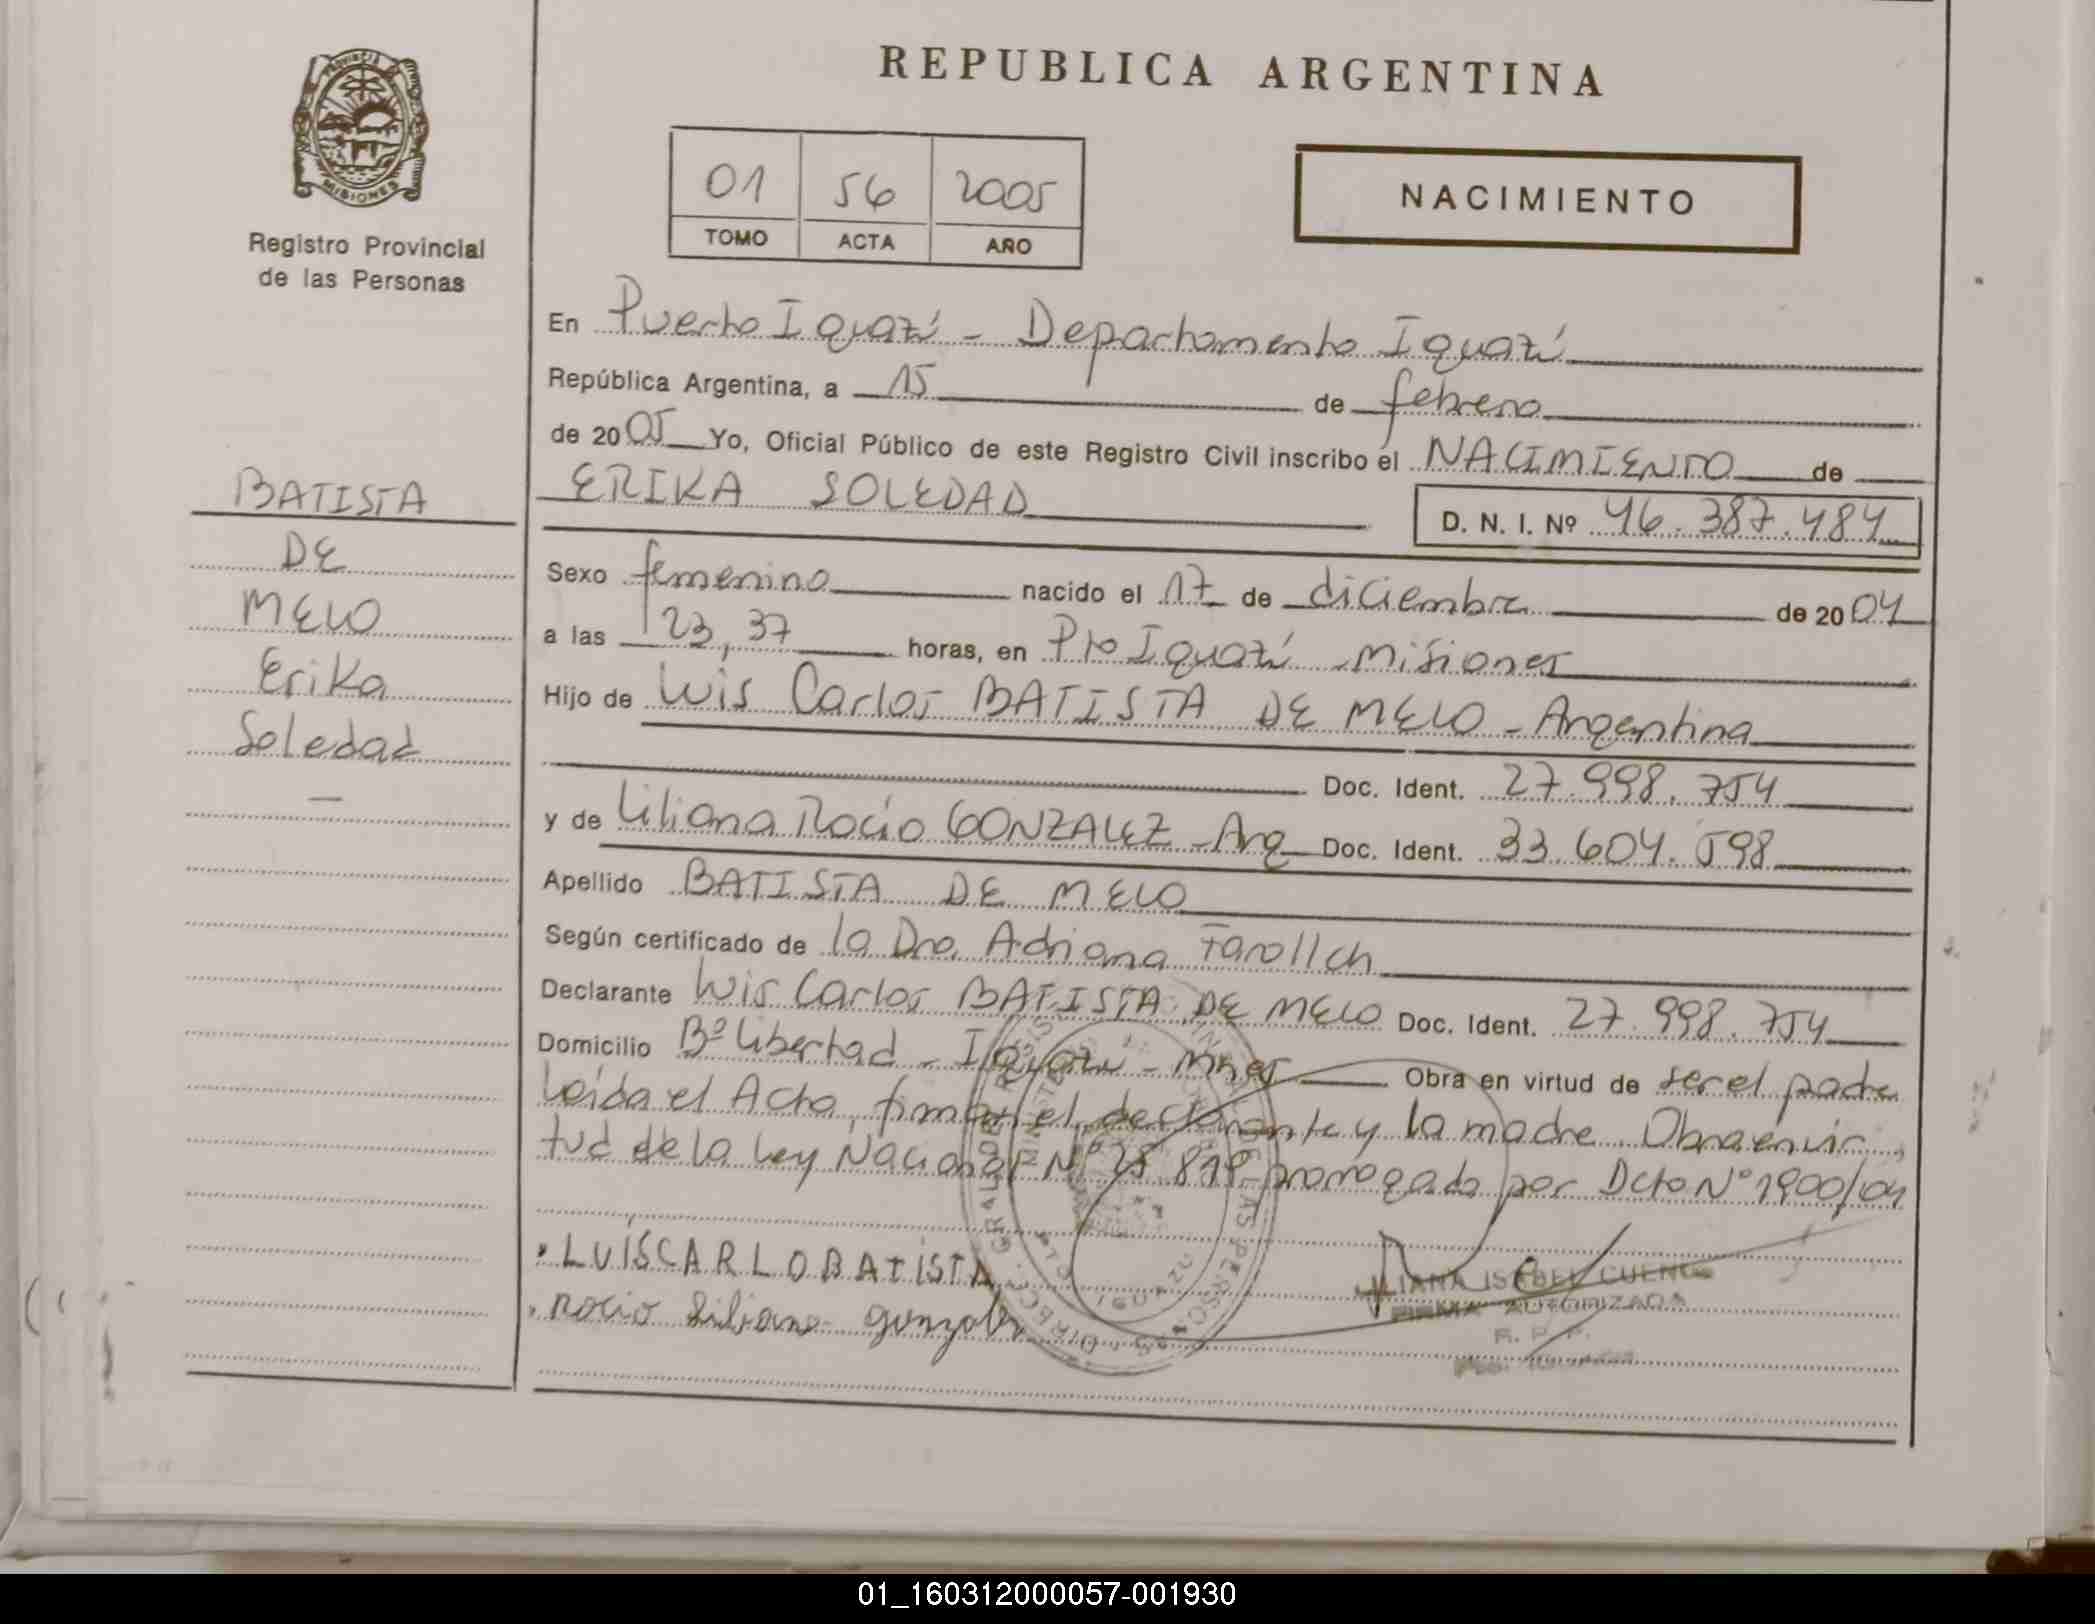 REPUBLICA ARGENTINA
PROVINCIA DE MISIONES
Registro Provincial
de las Personas
01 56 2005
TOMO ACTA AÑO
NACIMIENTO
En Puerto Iguazú - Departamento Iguazú
República Argentina, a 15 de febrero
de 2005 Yo, Oficial Público de este Registro Civil inscribo el NACIMIENTO de
ERIKA SOLEDAD
D. N. I. Nº 46.387.484
BATISTA
DE
MELO
Erika
Soledad
Sexo femenino nacido el 17 de diciembre de 2004
a las 23,37 horas, en Pto Iguazú Misiones
Hijo de Luis Carlos BATISTA DE MELO - Argentina
Doc. Ident. 27.998.754
y de Liliana Rocio GONZALEZ - Arg Doc. Ident. 33.604.598
Apellido BATISTA DE MELO
Según certificado de la Dra. Adriana
Declarante Luis Carlos BATISTA DE MELO Doc. Ident. 27.998.754
Domicilio Bº Libertad - Iguazu - Mnes Obra en virtud de ser el padre
Leída el Acta, firman el declarante y la madre. Obra en vir
tud de la Ley Nacional Nº 25.819 prorrogada por Dcto Nº 1900/04
LUISCARLOBATISTA
Rocio Liliana gonzalez
LILIANA ISABEL CUENCA
FIRMA AUTORIZADA
R. P. P.
01_160312000057-001930